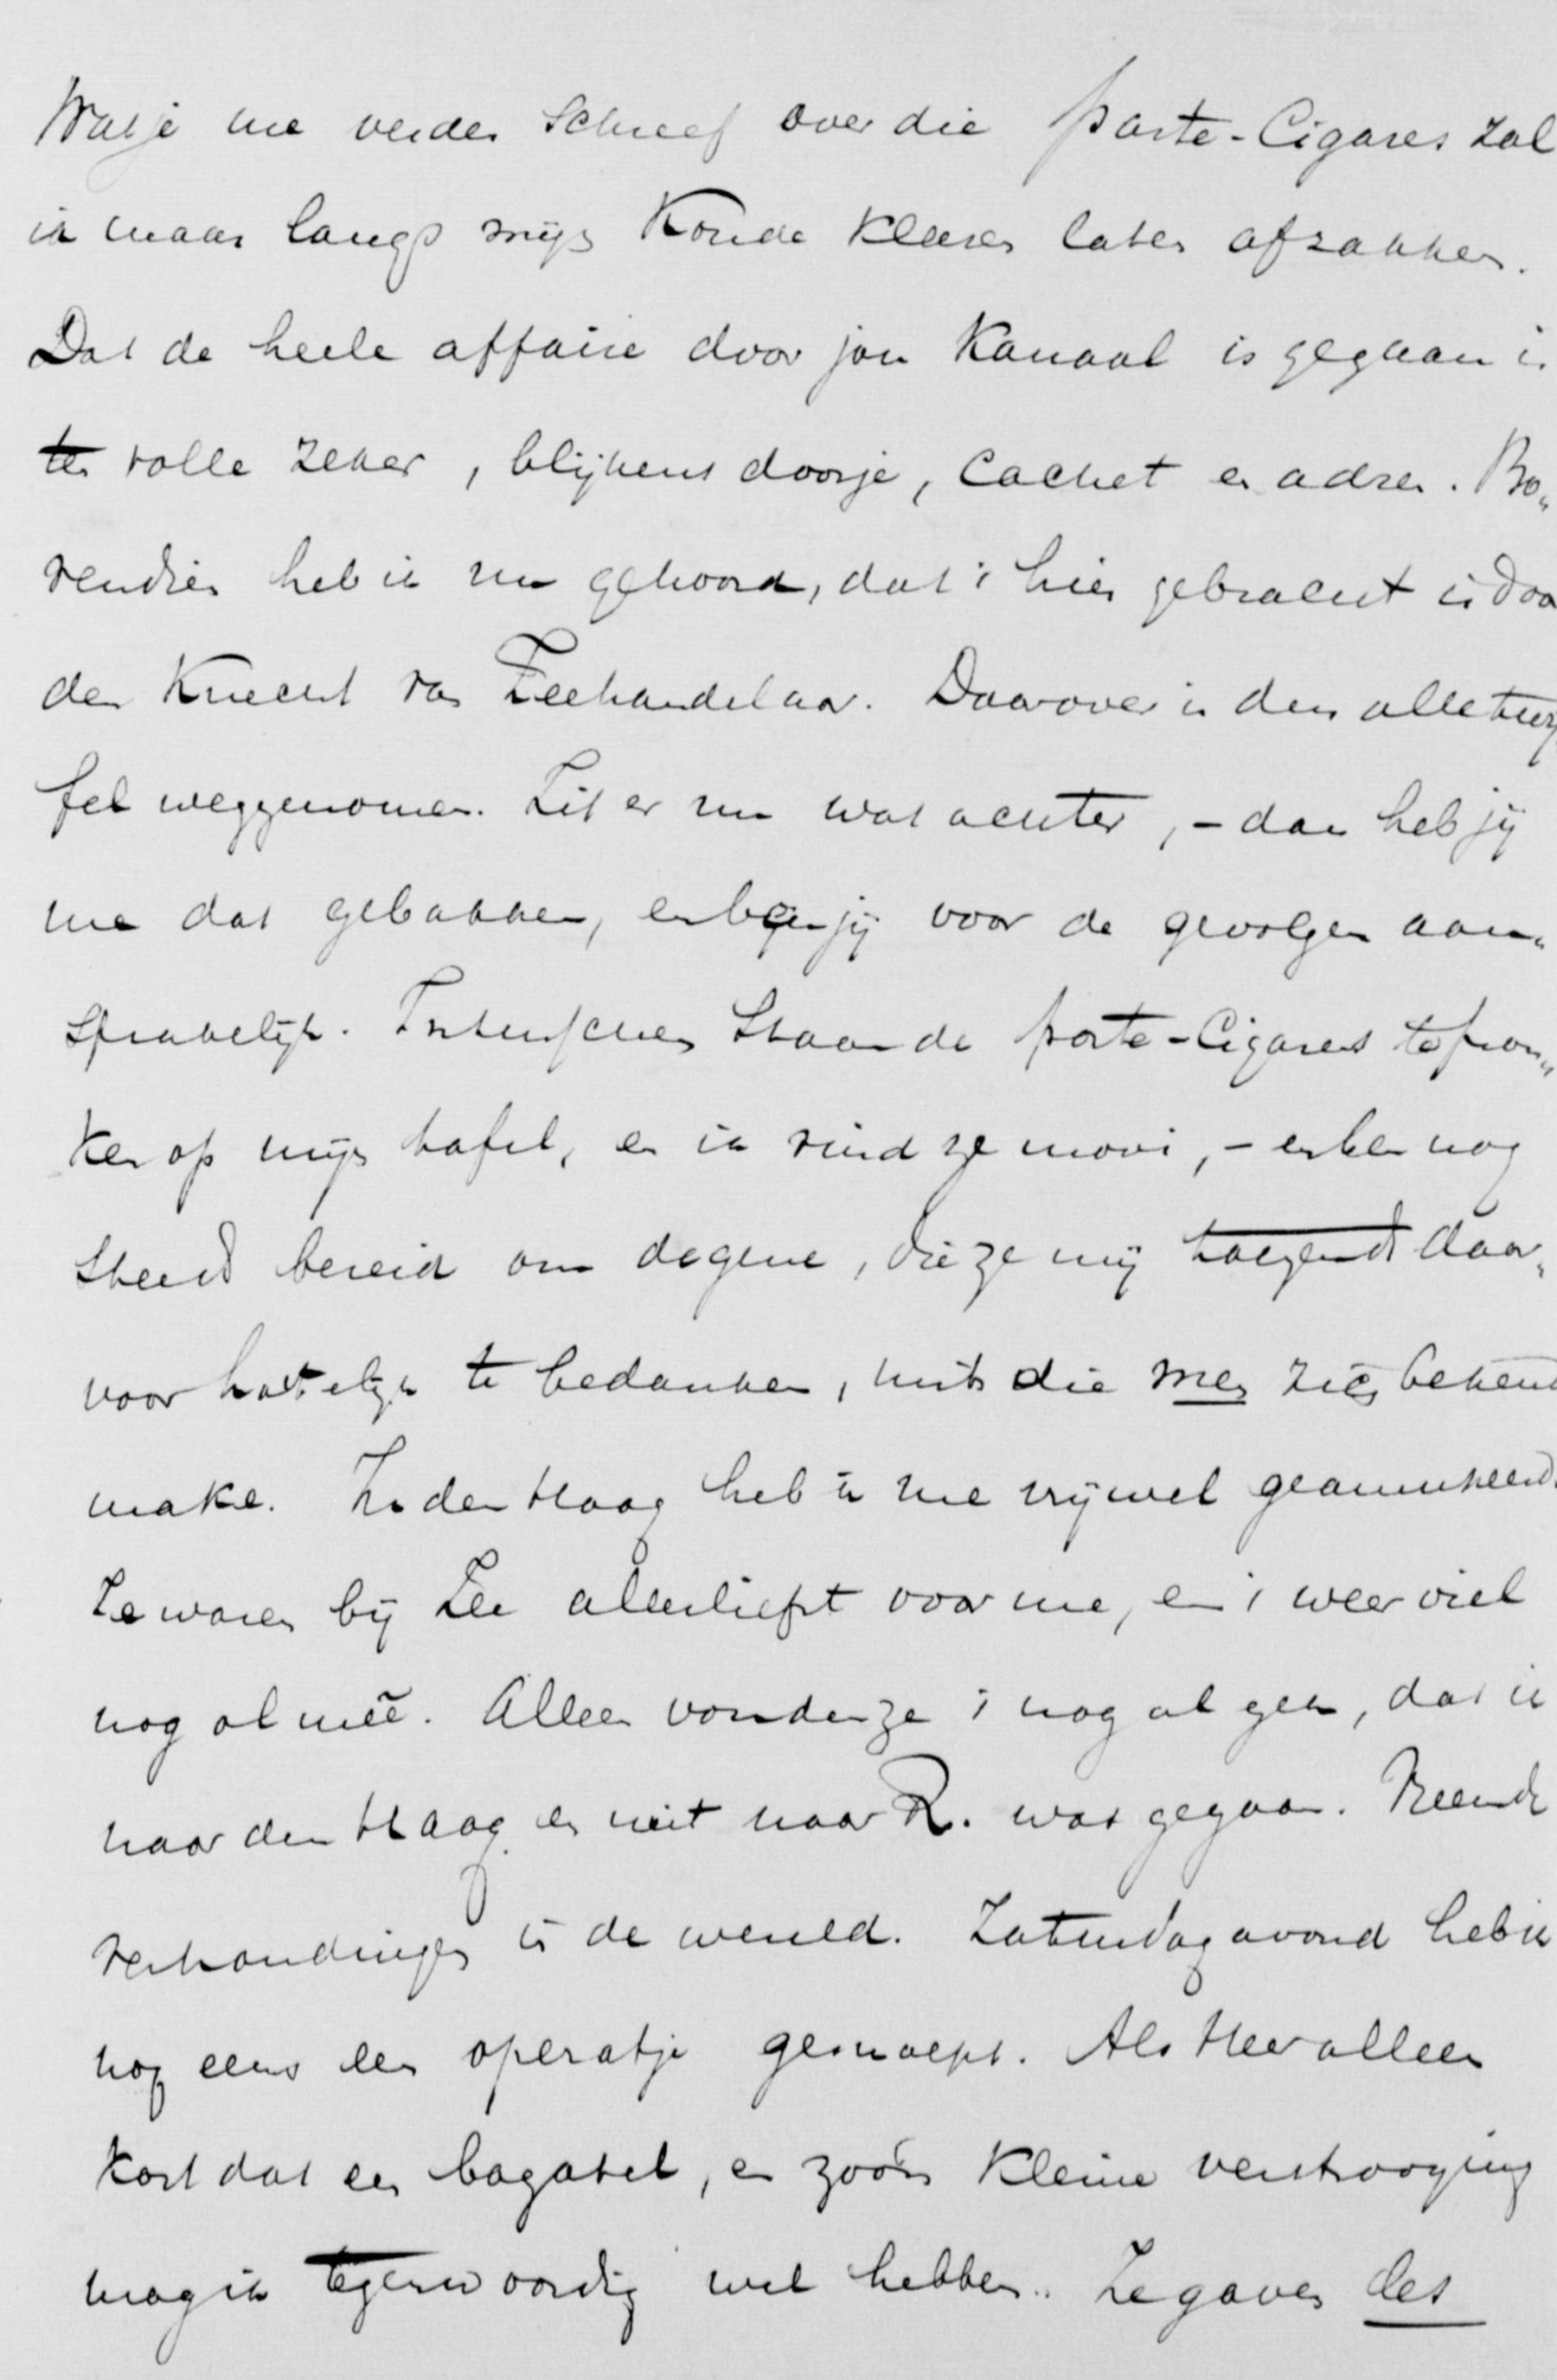 Wat je me verder schreef over die porte-cigares zal
ik maar langs mijn koude kleeren laten afzakken.
Dat de heele affaire door jou kanaal is gegaan is
ten volle zeker, blijkens doosje, cachet en adres. Bo„
vendien heb ik nu gehoord, dat 't hier gebracht is door
den knecht van Zeehandelaar. Daarover is dus alle twij
fel weggenomen. Zit er nu wat achter, – dan heb jij
me dat gebakken, en ben jij voor de gevolgen aan„
sprakelijk. Intusschen staan de porte-cigares te pron„
ken op mijn tafel, en ik vind ze mooi, – en ben nog
steeds bereid om degene, die ze mij toezendt daar„
voor hartelijk te bedanken, mits die men zich bekend
make. In den Haag heb ik me vrijwel geamuseerd.
Ze waren bij Zee allerliefst voor me, en 't weer viel
nog al meê. Alleen vonden ze 't nog al gek, dat ik
naar den Haag en niet naar R. was gegaan. Vreemde
verhoudingen in de wereld. Zaterdagavond heb ik
nog eens een operatje gesnoept. Als Heer alleen
kost dat een bagatel, en zoo'n kleine verstrooying
mag ik tegenwoordig wel hebben. Ze gaven des